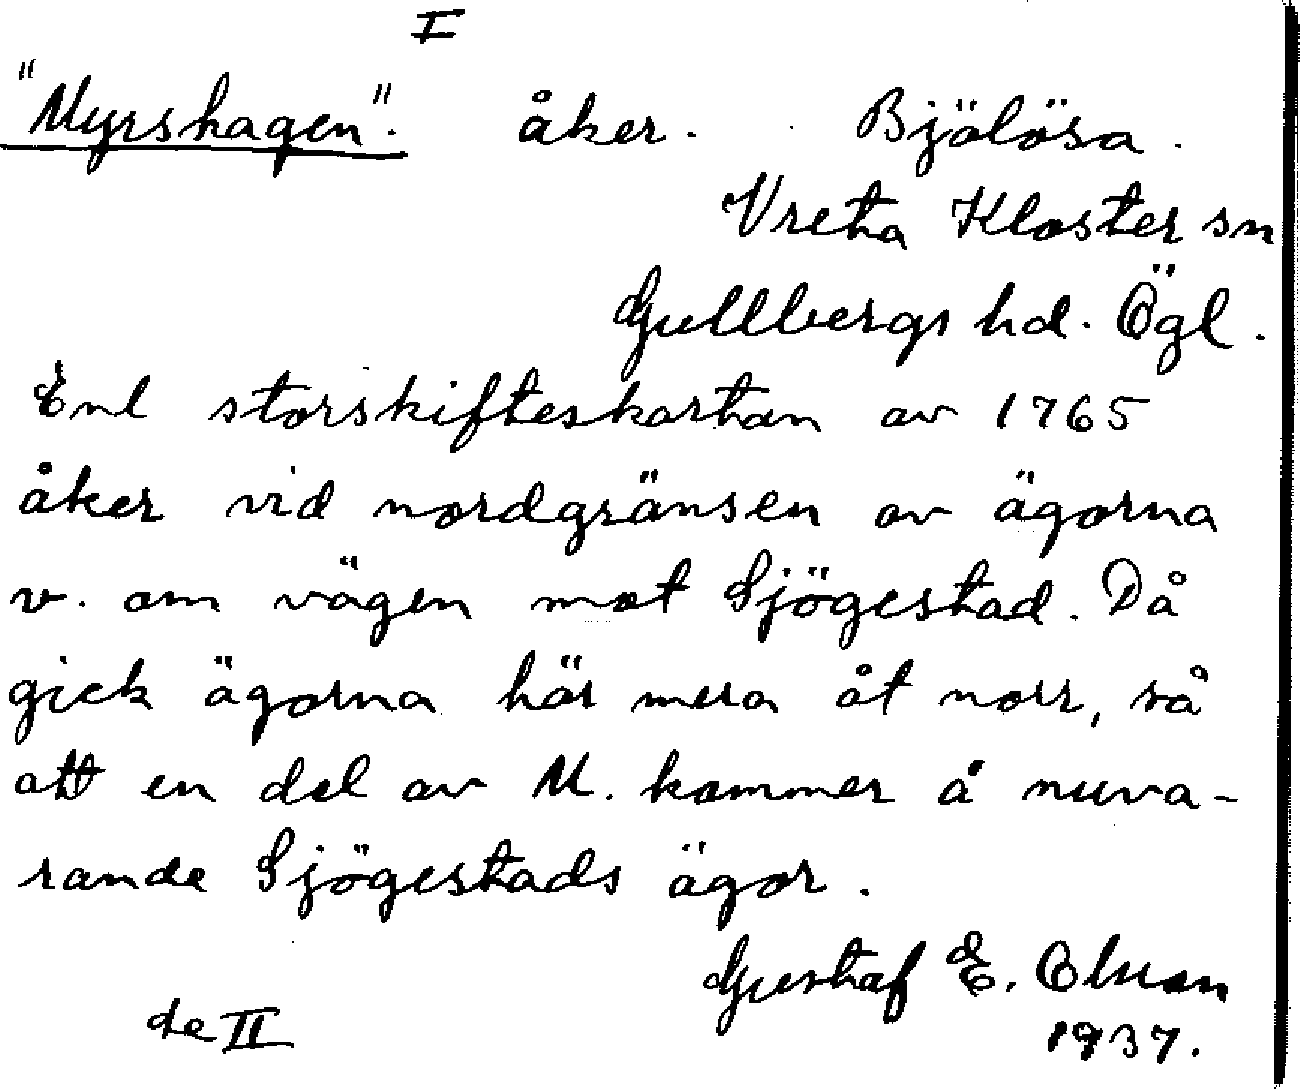 I
"Myrshagen". åker. Bjölösa.
Vreta Kloster sn
Gullbergs hd. Ögl.
Enl storskifteskartan av 1765
åker vid nordgränsen av ägorna
v. om vägen mot Sjögestad. Då
gick ägorna här mera åt norr, så
att en del av M. kommer å nuva-
rande Sjögestads ägor.
Gustaf E. Olsson
1937.
de II